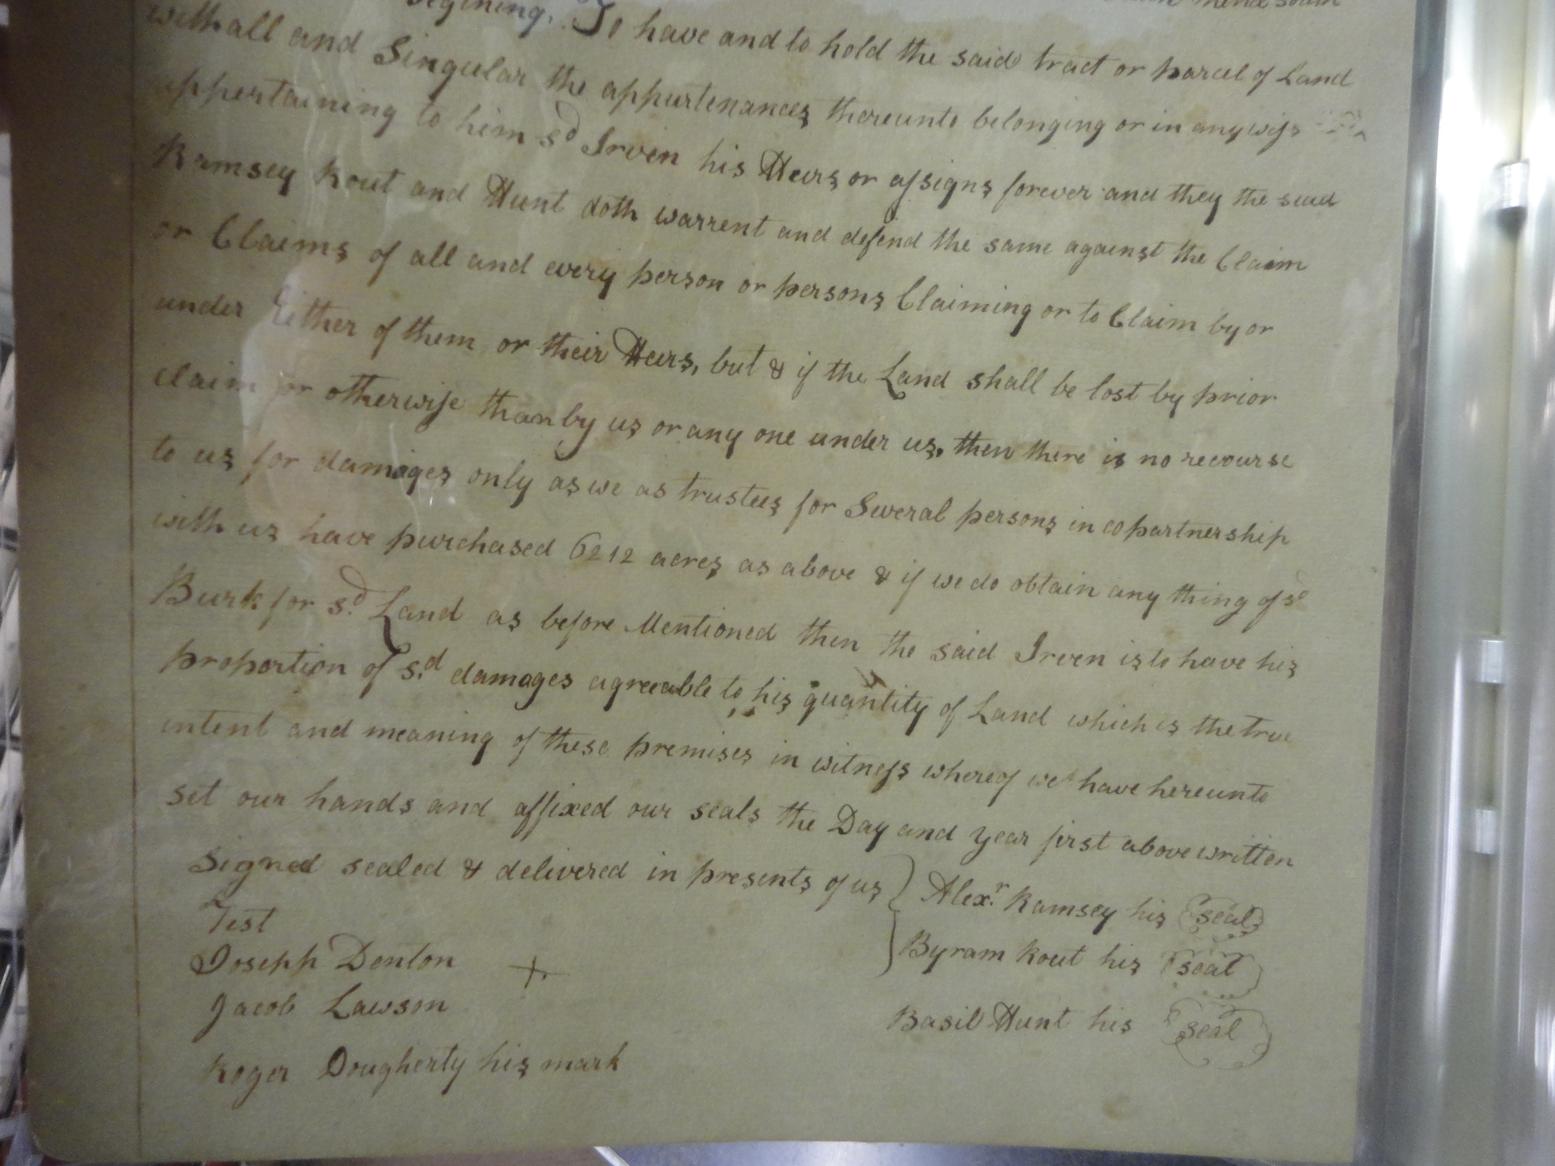 begining. To have and to hold the said tract or parcel of Land
withall and Singular the appurtenances thereunto belonging or in anywise
appertaining to him sd Irven his Heirs or assigns forever and they the said
Ramsey Rout and Hunt doth warrent and defend the same against the Claim
or Claims of all and every person or persons Claiming or to Claim by or
under Either of them or their Heirs, but & if the Land shall be lost by prior
claim or otherwise than by us or any one under us, then there is no recourse
to us for damages only as we as trustees for Several persons in copartnership
with us have purchased 6212 acres as above & if we do obtain any thing of sd
Burk for sd. Land as before Mentioned then the said Irven is to have his
proportion of sd. damages agreeable to his quantity of Land which is the true
intent and meaning of these premises in witness whereof we have hereunto
set our hands and affixed our seals the Day and year first above written
Signed sealed & delivered in presents of us } Alexr. Ramsey his seal
Test
Byram Rout his seal
Joseph Donlon +
Jacob Lawson
Basil Hunt his seal
Roger Dougherty his mark